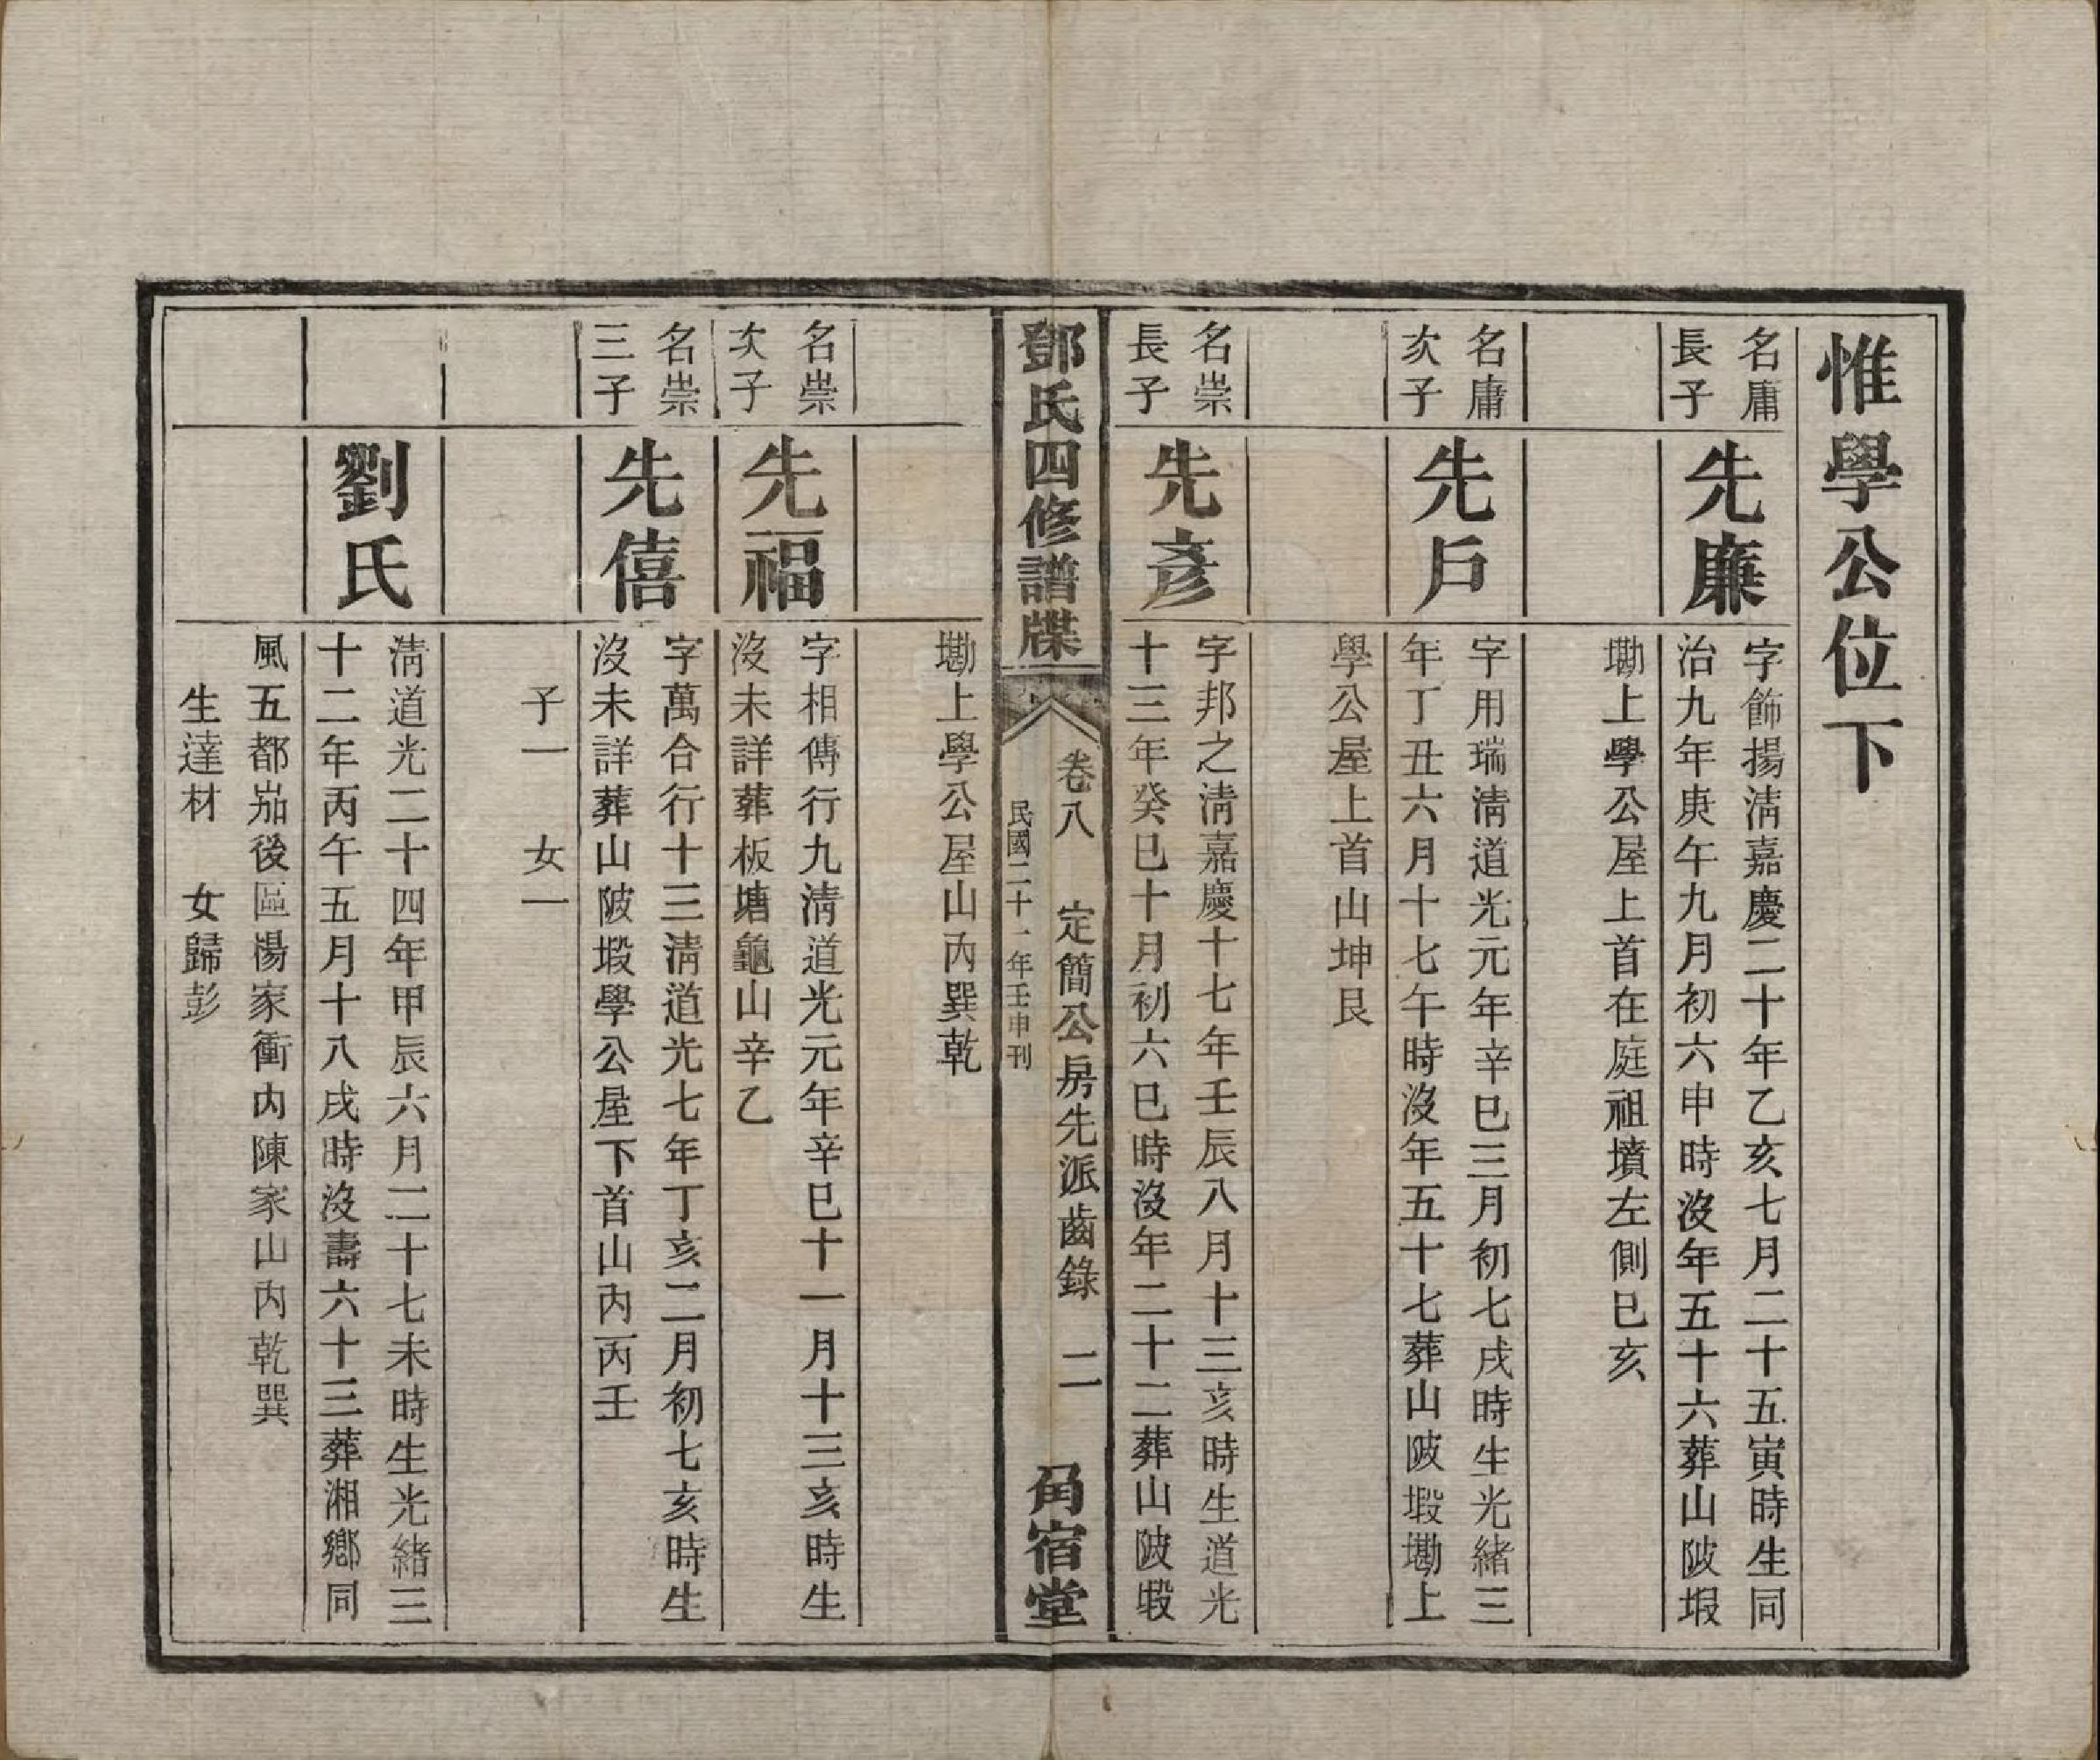 惟學公位下
名庸
長子
先廉
字飾揚淸嘉慶二十年乙亥七月二十五寅時生同
治九年庚午九月初六申時沒年五十六葬山陂塅
墈上學公屋上首在庭祖墳左側巳亥
名庸
次子
先戶
字用瑞淸道光元年辛巳三月初七戌時生光緒三
年丁丑六月十七午時沒年五十七葬山陂塅墈上
學公屋上首山坤艮
名崇
長子
先彥
字邦之淸嘉慶十七年壬辰八月十三亥時生道光
十三年癸巳十月初六巳時沒年二十二葬山陂塅
鄧氏四修譜牒
卷八 定簡公房先派齒錄 二
民國二十一年壬申刊
角宿堂
墈上學公屋山內巽乾
名崇
次子
先福
字相傳行九淸道光元年辛巳十一月十三亥時生
沒未詳葬板塘龜山辛乙
名崇
三子
先僖
字萬合行十三淸道光七年丁亥二月初七亥時生
沒未詳葬山陂塅學公屋下首山內丙壬
子一 女一
劉氏
淸道光二十四年甲辰六月二十七未時生光緒三
十二年丙午五月十八戌時沒壽六十三葬湘鄉同
風五都茄後區楊家衝內陳家山內乾巽
生達材 女歸彭